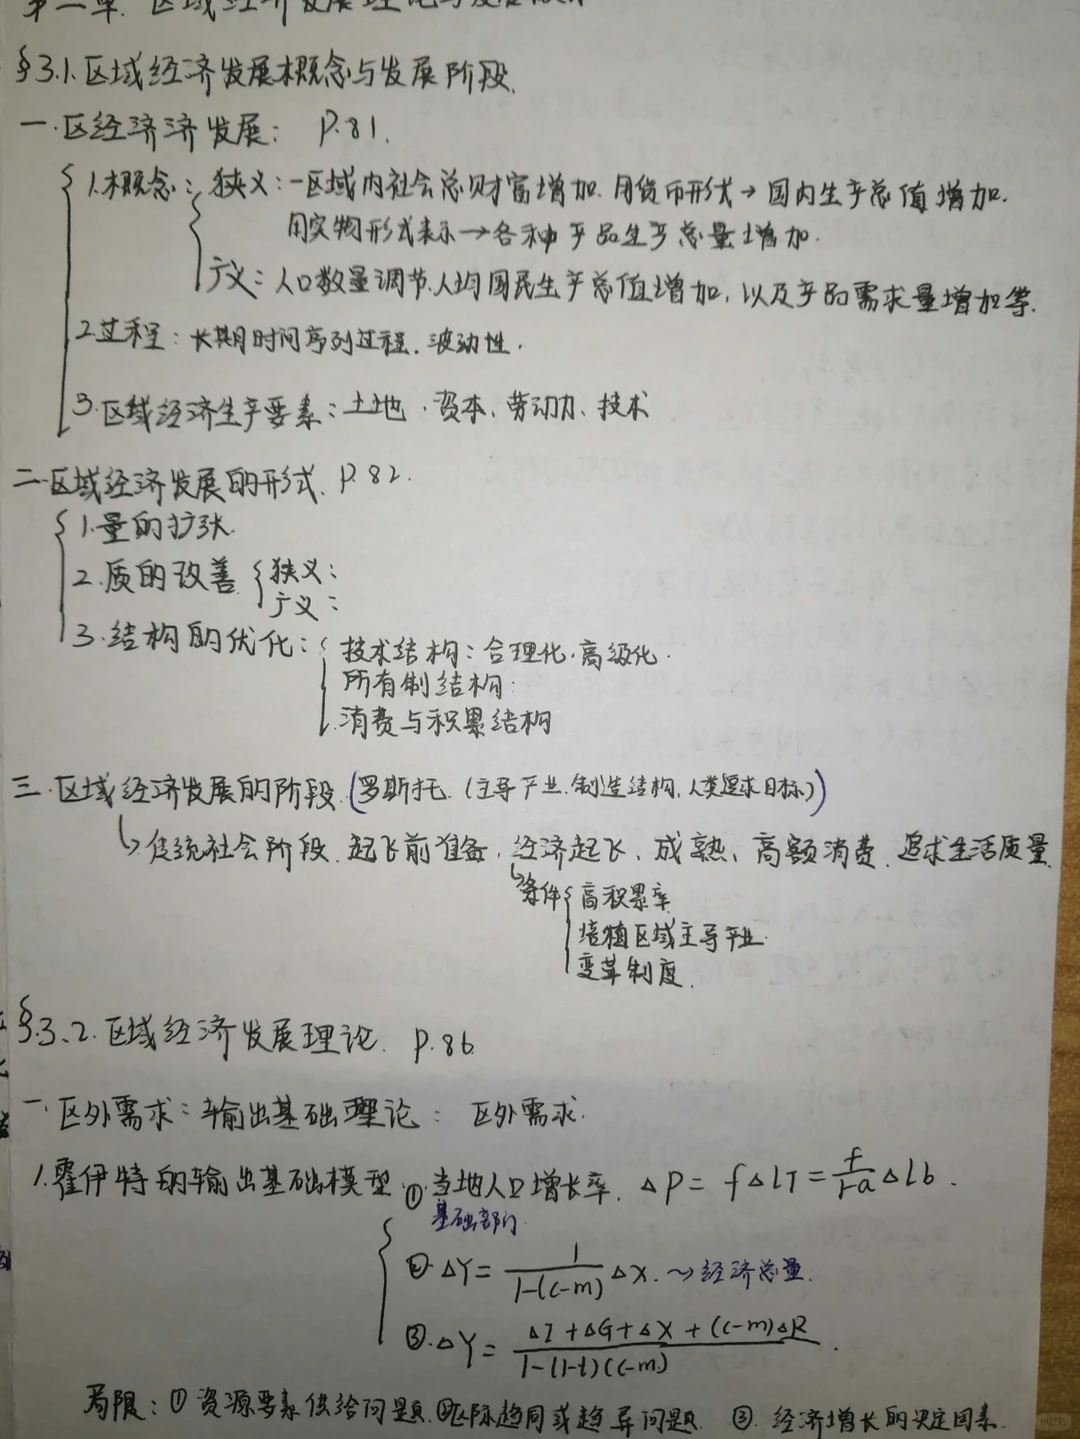 区域经济发展理论与发展
§3.1.区域经济发展概念与发展阶段.
一.区经济济发展: P.81.
1.概念: 狭义:一区域内社会总财富增加.用货币形式→国内生产总值增加.
用实物形式表示→各种产品生产总量增加.
广义:人口数量调节.人均国民生产总值增加,以及产品需求量增加等.
2.过程:长期时间序列过程.波动性.
3.区域经济生产要素:土地.资本、劳动力、技术
二.区域经济发展的形式. P.82.
1.量的扩张.
2.质的改善 狭义:
广义:
3.结构的优化: 技术结构:合理化.高级化.
所有制结构:
消费与积累结构
三.区域经济发展的阶段.(罗斯托.(主导产业.制造结构.人类追求目标))
↳传统社会阶段.起飞前准备.经济起飞、成熟、高额消费.追求生活质量
↳条件 高积累率
培植区域主导产业.
变革制度.
§3.2.区域经济发展理论. P.86
一.区外需求:输出基础理论: 区外需求.
1.霍伊特的输出基础模型.①当地人口增长率. △P=f△LT=f/1-a△Lb.
基础部门.
②.△Y=1/1-(c-m)△X.~>经济总量.
③.△Y=△I+△G+△X+(c-m)△R/1-(1-t)(c-m).
局限:①资源要素供给问题.②区际趋同或趋异问题. ③.经济增长的决定因素.